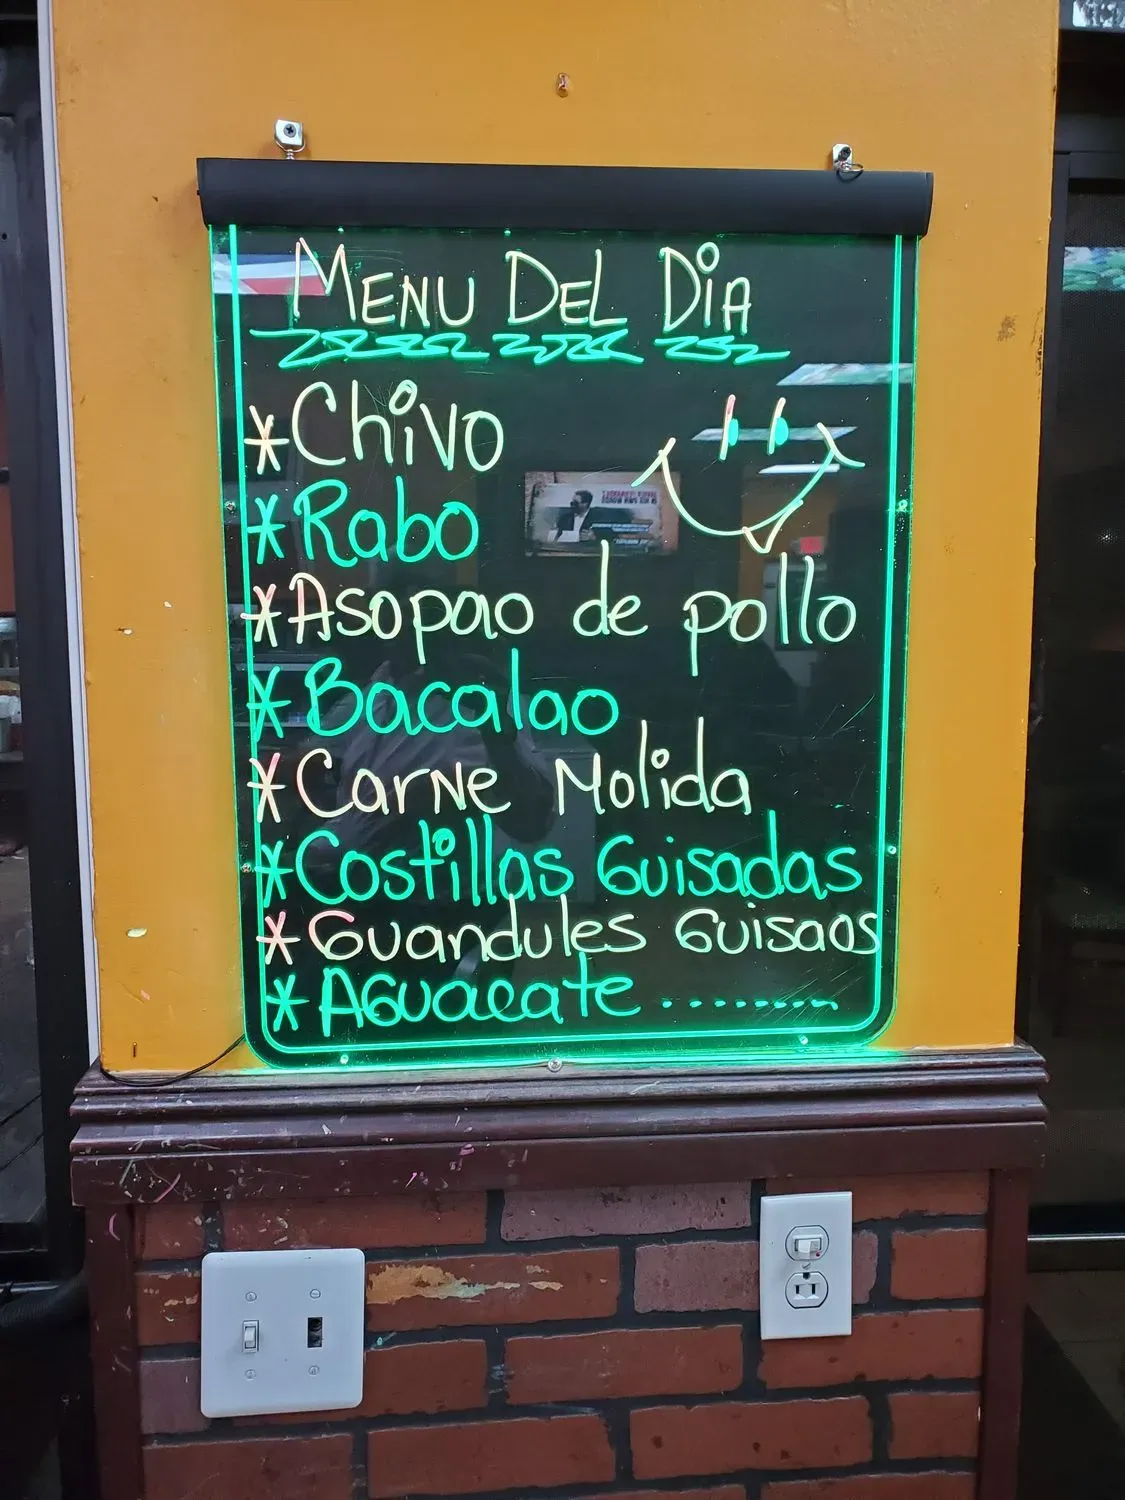 MENU DEL DiA
*ChiVO
*Rabo
*Asopao de pollo
*Bacalao
*CarNe Molida
*Costillas Guisadas
*Guandules Guisaos
*AGuacate ........